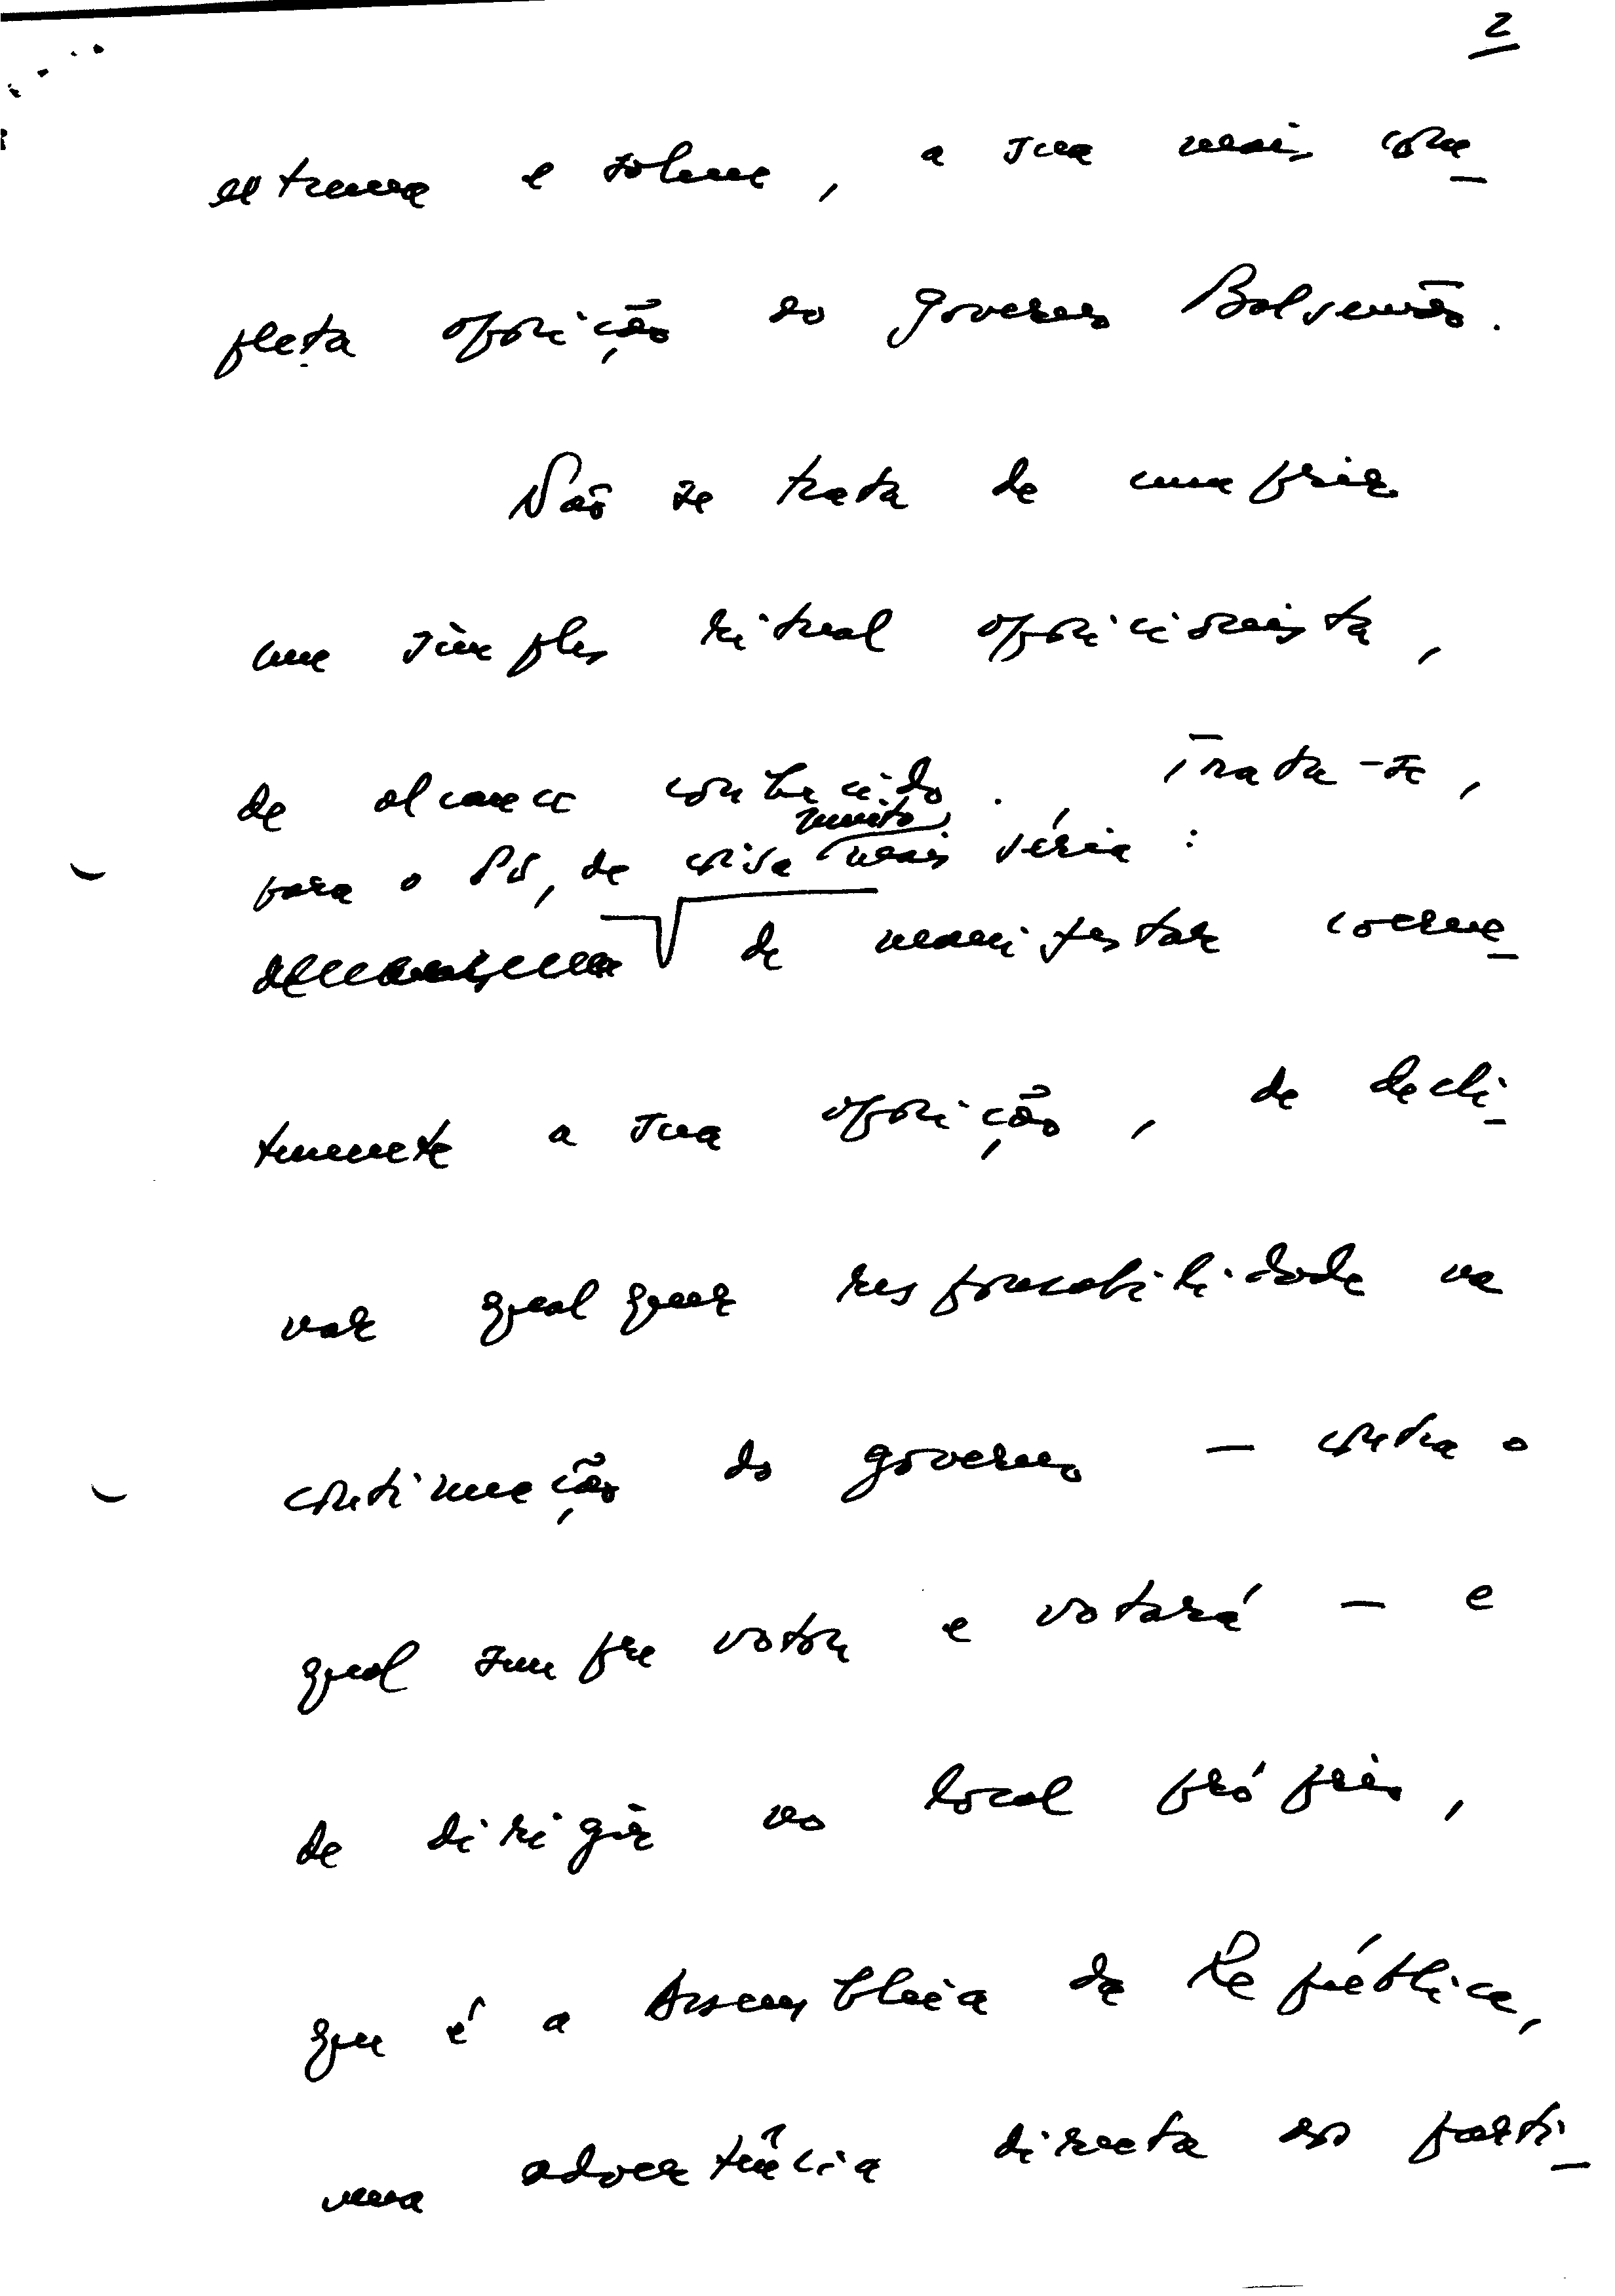 2
extrema e solene, a sua mais com-
pleta oposição ao governo Balsemão.
Não se trata de cumprir
um simples ritual oposicionista,
de alcance conhecido. Trata-se,
muito
para o PS, de coisa mais séria:
de manifestar coeren-
temente a sua oposição, de decli-
nar qualquer responsabilidade na
continuação do governo — contra o
qual sempre votou e votará — e
de dirigir no local próprio,
que é a Assembleia da República,
uma advertência directa aos parti-